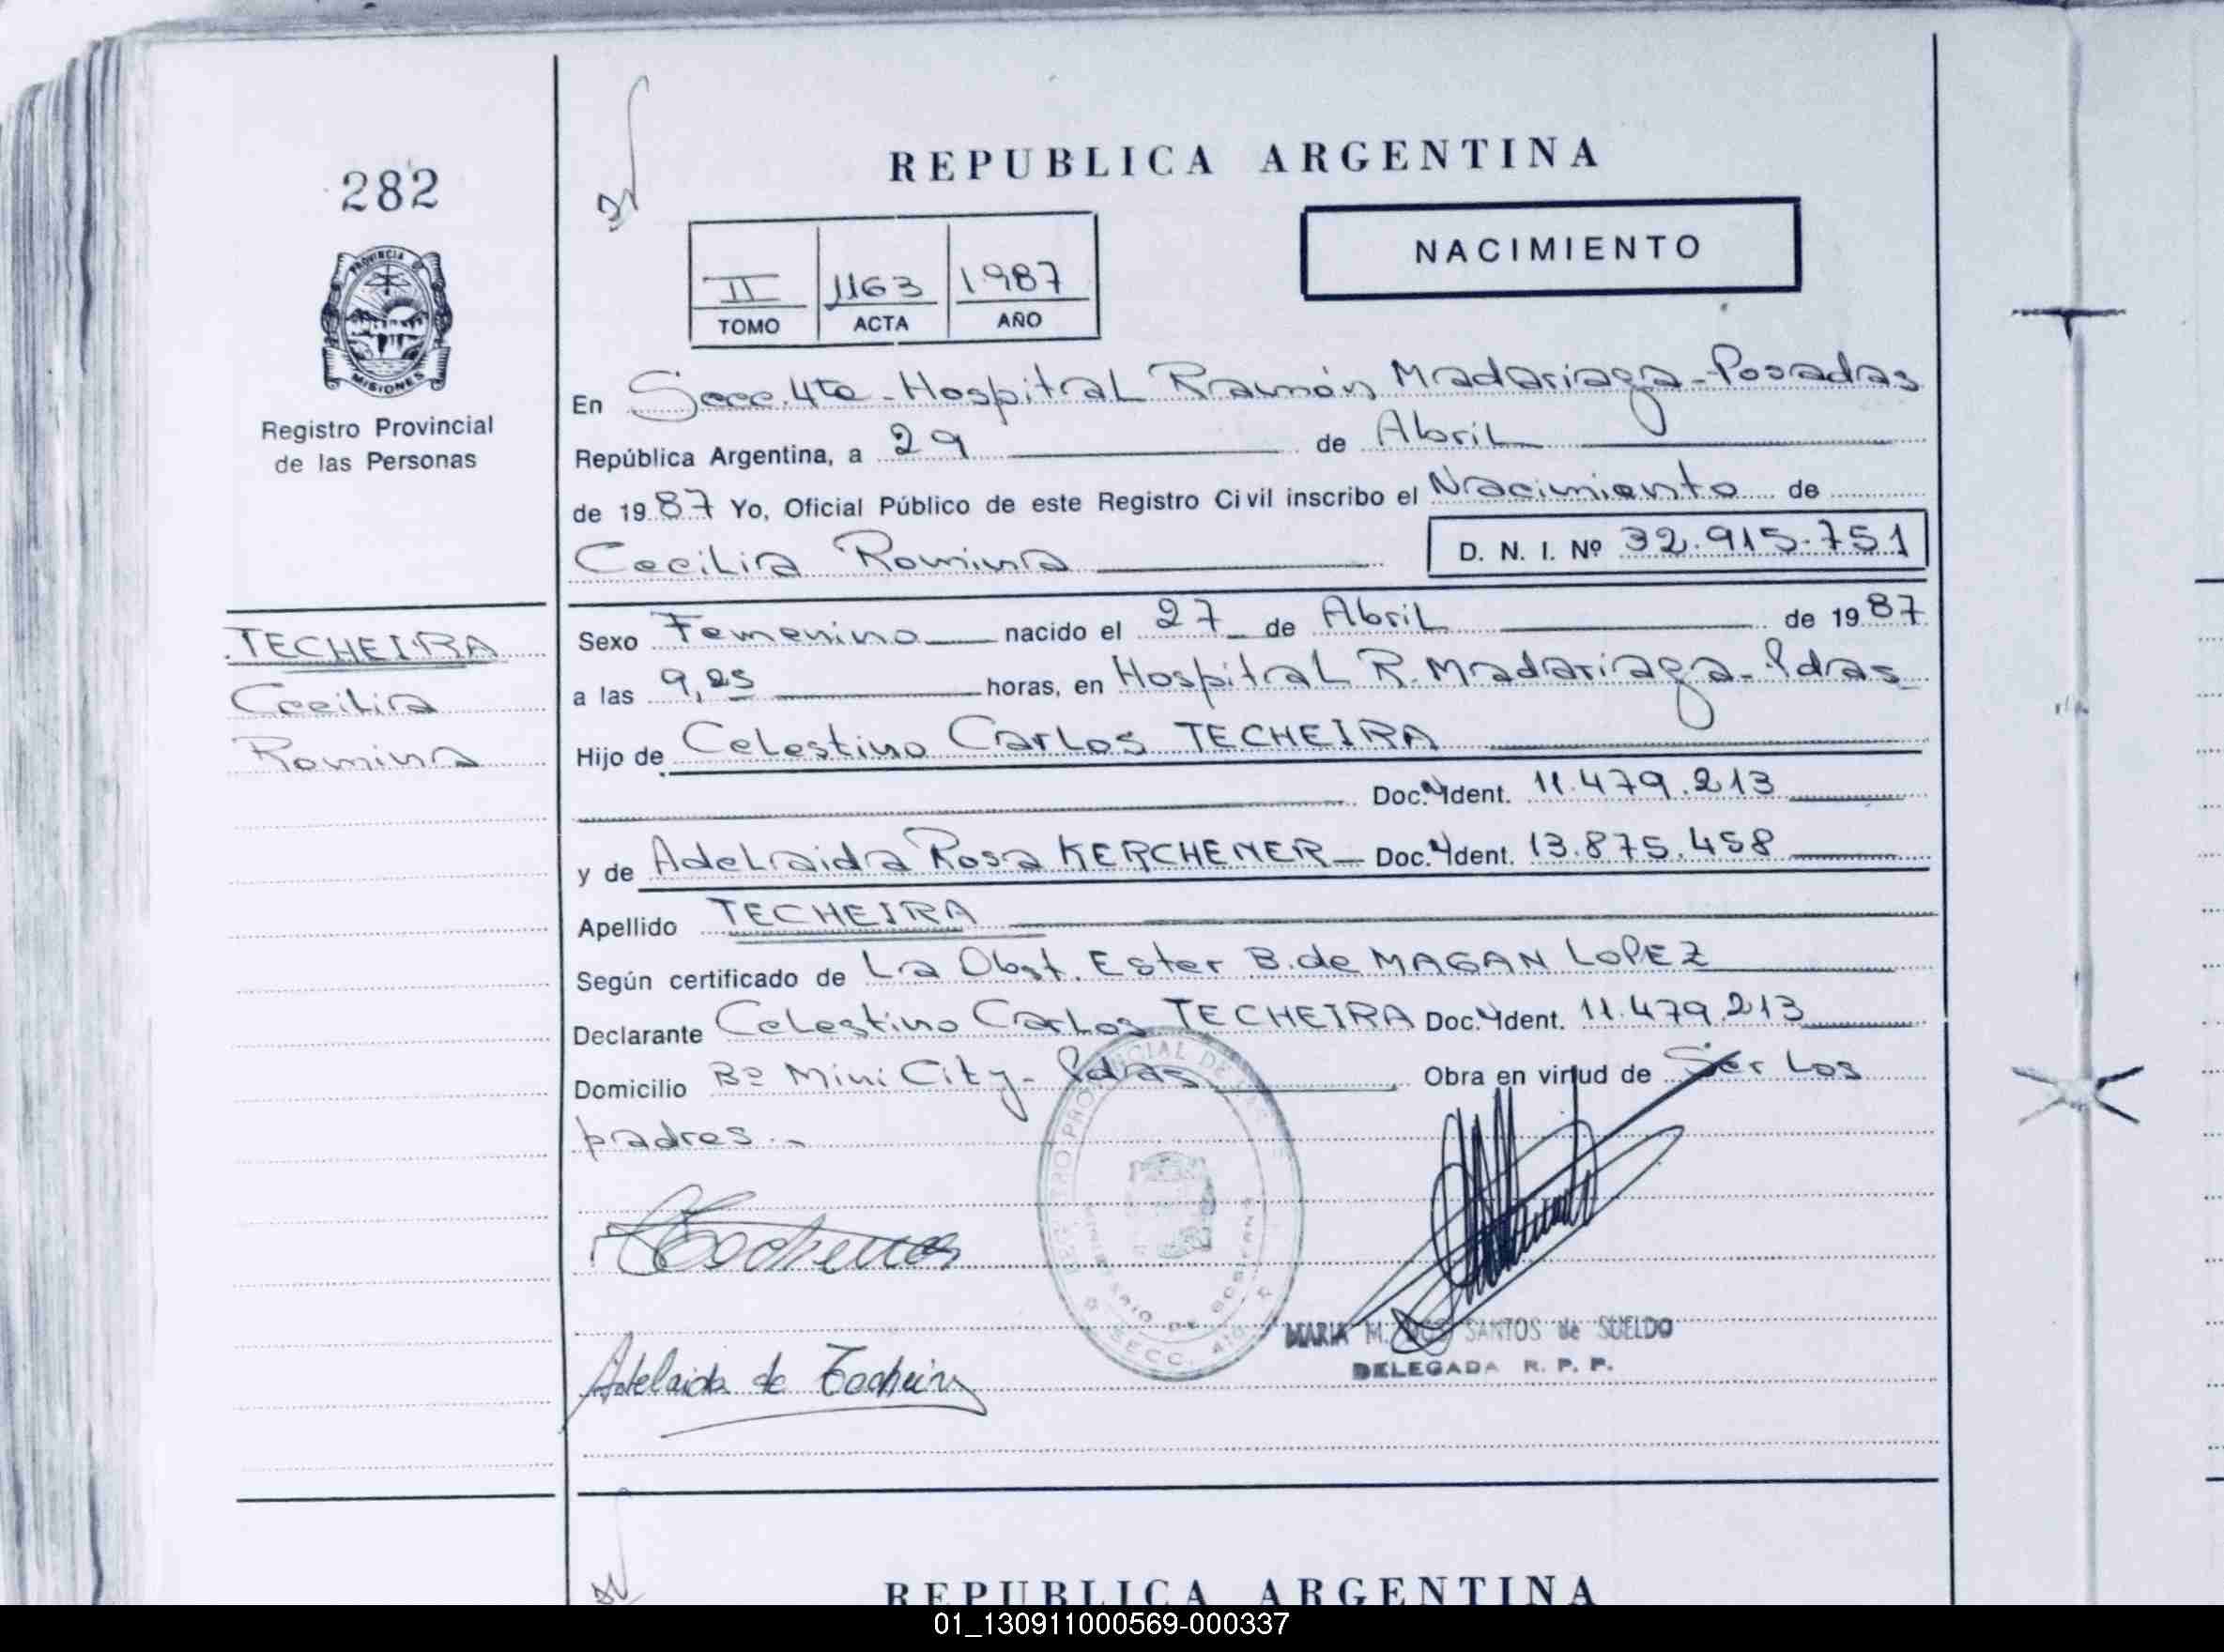 282
PROVINCIA D
MISIONES
Registro Provincial
de las Personas
TECHEIRA
Cecilia
Romina
REPUBLICA ARGENTINA
NACIMIENTO
II 1163 1987
TOMO ACTA AÑO
En Secc. 4ta - Hospital Ramón Madariaga - Posadas
República Argentina, a 29 de Abril
de 1987 Yo, Oficial Público de este Registro Civil inscribo el Nacimiento de
Cecilia Romina D. N. I. Nº 32.915.751
Sexo Femenino nacido el 27 de Abril de 1987
a las 9,25 horas, en Hospital R. Madariaga - Pdas
Hijo de Celestino Carlos TECHEIRA
Doc. Ident. 11.479.213
y de Adelaida Rosa KERCHENER - Doc. Ident. 13.875.458
Apellido TECHEIRA
Según certificado de La Obst. Ester B. de MAGAN LOPEZ
Declarante Celestino Carlos TECHEIRA Doc. Ident. 11.479.213
Domicilio Bº Mini City - Pdas Obra en virtud de Ser Los
padres.-
REGISTRO PROVINCIAL DE LAS
MINISTERIO DE GOBIERNO
SECC. 4ta
MARIA M. DOS SANTOS de SUELDO
DELEGADA R. P. P.
Adelaida de Techeira
REPUBLICA ARGENTINA
01_130911000569-000337